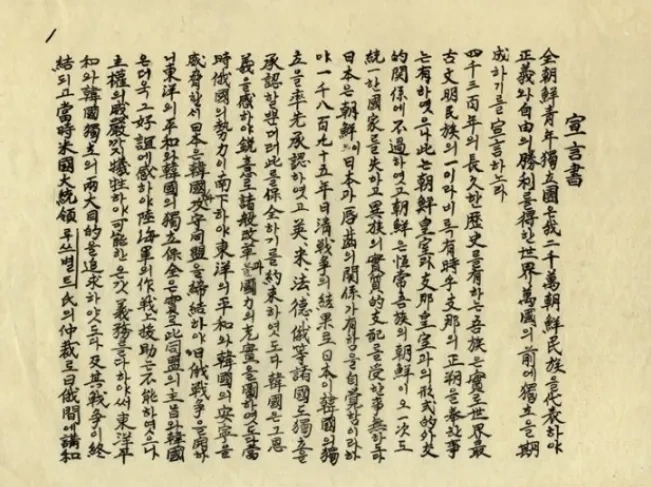 宣言書
全朝鮮青年獨立團은我二千萬朝鮮民族을代表하야
正義와自由의勝利를得한世界萬國의前에獨立을期
成하기를宣言하노라
四千三百年의長久한歷史를有하는吾族은實로世界最
古文明民族의一이라비록有時乎支那의正朔을奉한事
는有하엿으나此는朝鮮皇室과支那皇室과의形式的外交
的關係에不過하엿고朝鮮은恒常吾族의朝鮮이오一次도
統一한國家를失하고異族의實質的支配를受한事無하도다
日本은朝鮮이日本과唇齒의關係가有함을自覺함이라하
야一千八百九十五年日清戰爭의結果로日本이韓國의獨
立을率先承認하엿고英、米、法、德、俄等諸國도獨立을
承認할뿐더러此를保全하기를約束하엿도다韓國은그恩
義를感하야銳意로諸般改革과國力의充實을圖하엿도다當
時俄國의勢力이南下하야東洋의平和와韓國의安寧을
威脅할새日本은韓國과攻守同盟을締結하야日俄戰爭을開하
니東洋의平和와韓國의獨立保全은實로此同盟의主旨와韓國
은더욱그好誼에感하야陸海軍의作戰上援助는不能하엿으나
主權의威嚴까지犧牲하야可能한온갓義務를다하야써東洋平
和와韓國獨立의兩大目的을追求하얏도다及其戰爭이終
結되고當時米國大統領루쓰벨드氏의仲裁로日俄間에講和
1